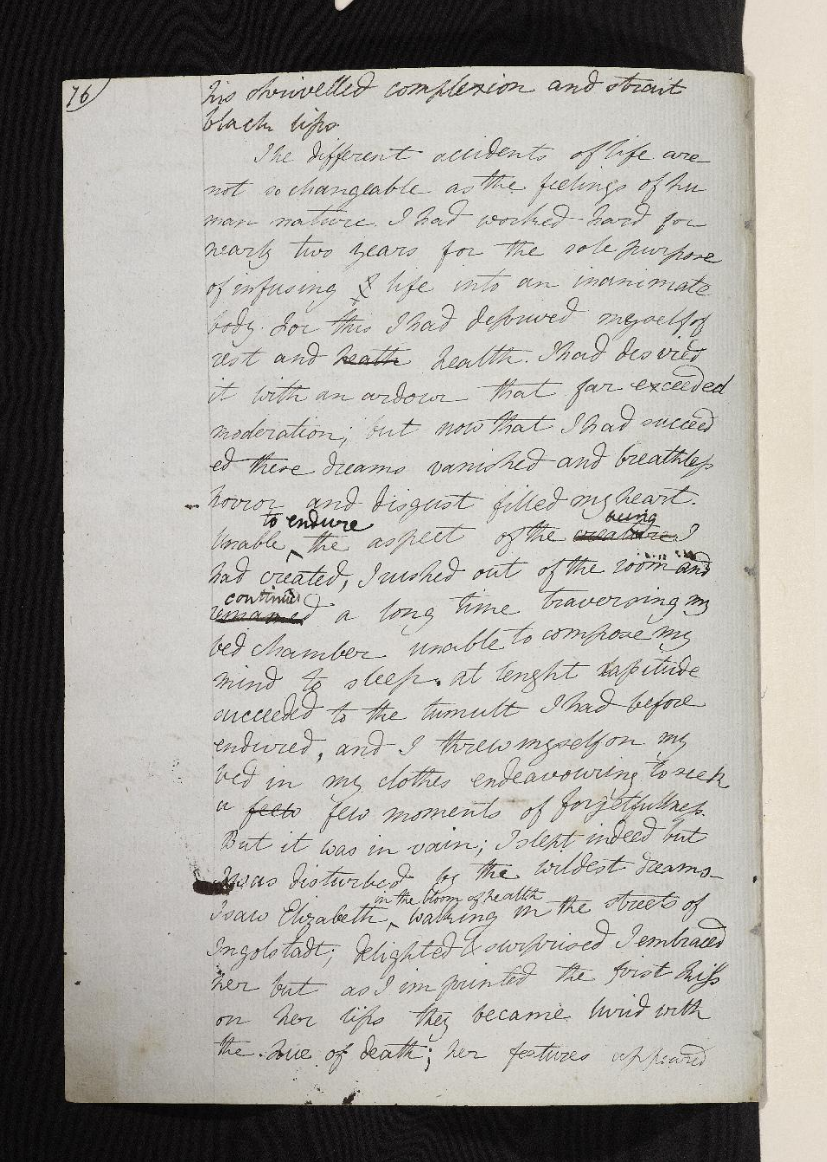 76
his shrivelled complexion and strait
black lips
The different accidents of life are
not so changeable as the feelings of hu
man nature. I had worked hard for
nearly two years for the sole purpose
of infusing life into an inanimate
body. For this I had deprived myself of
rest and heath health. I had desired
it with an ardour that far exceeded
moderation; but now that I had succeed
ed these dreams vanished and breathless
horror and disgust filled my heart.
to endure being
Unable ^ the aspect of the creature I
had created, I rushed out of the room and
continued
remained a long time traversing my
bed chamber unable to compose my
mind to sleep. at lenght lassitude
succeeded to the tumult I had before
endured, and I threw myself on my
bed in my clothes endeavouring to seek
a feew few moments of forgetfullness.
But it was in vain; I slept indeed but
I was disturbed by the wildest dreams
in the bloom of health
I saw Elizabeth ^ walking in the streets of
Ingolstadt; delighted & surprised I embraced
her but as I imprinted the first kiss
on her lips they became livid with
the hue of death; her features appeared